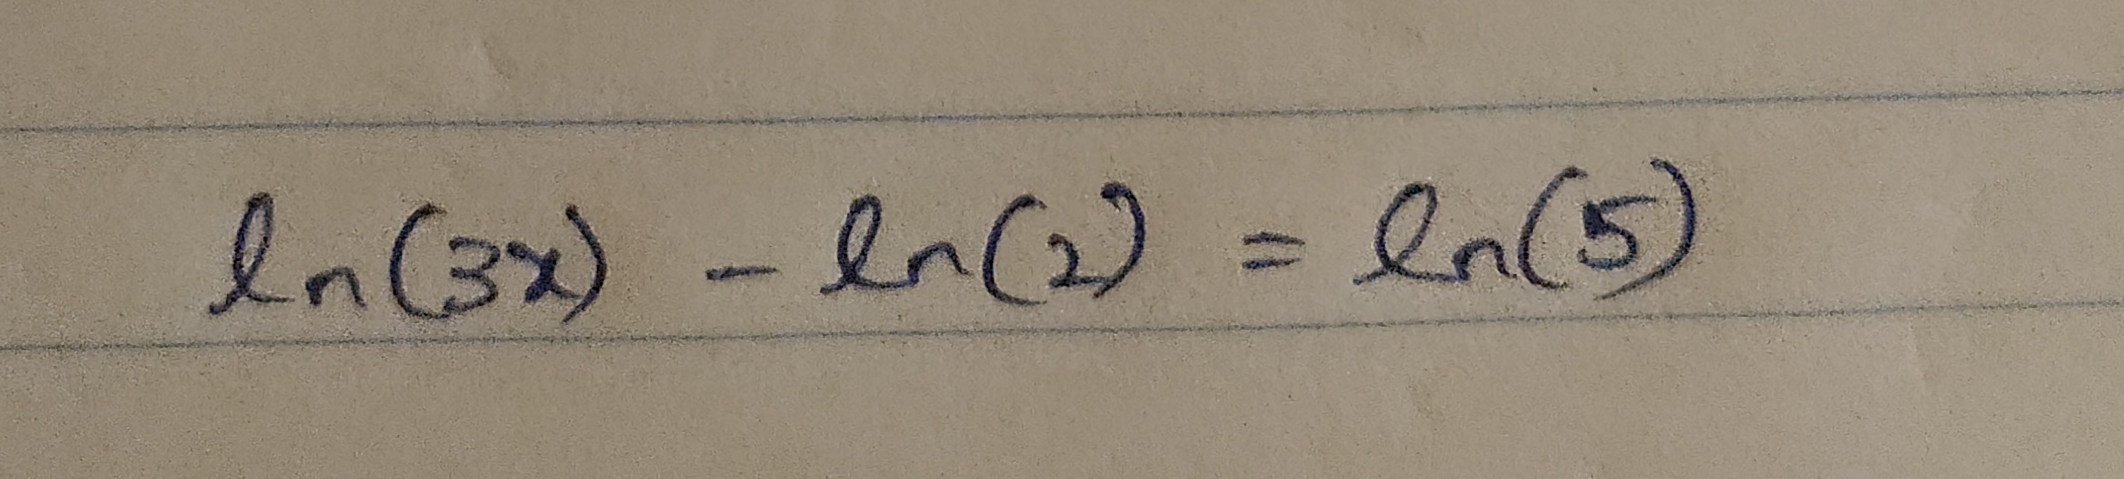 ln(3x) - ln(2) = ln(5)